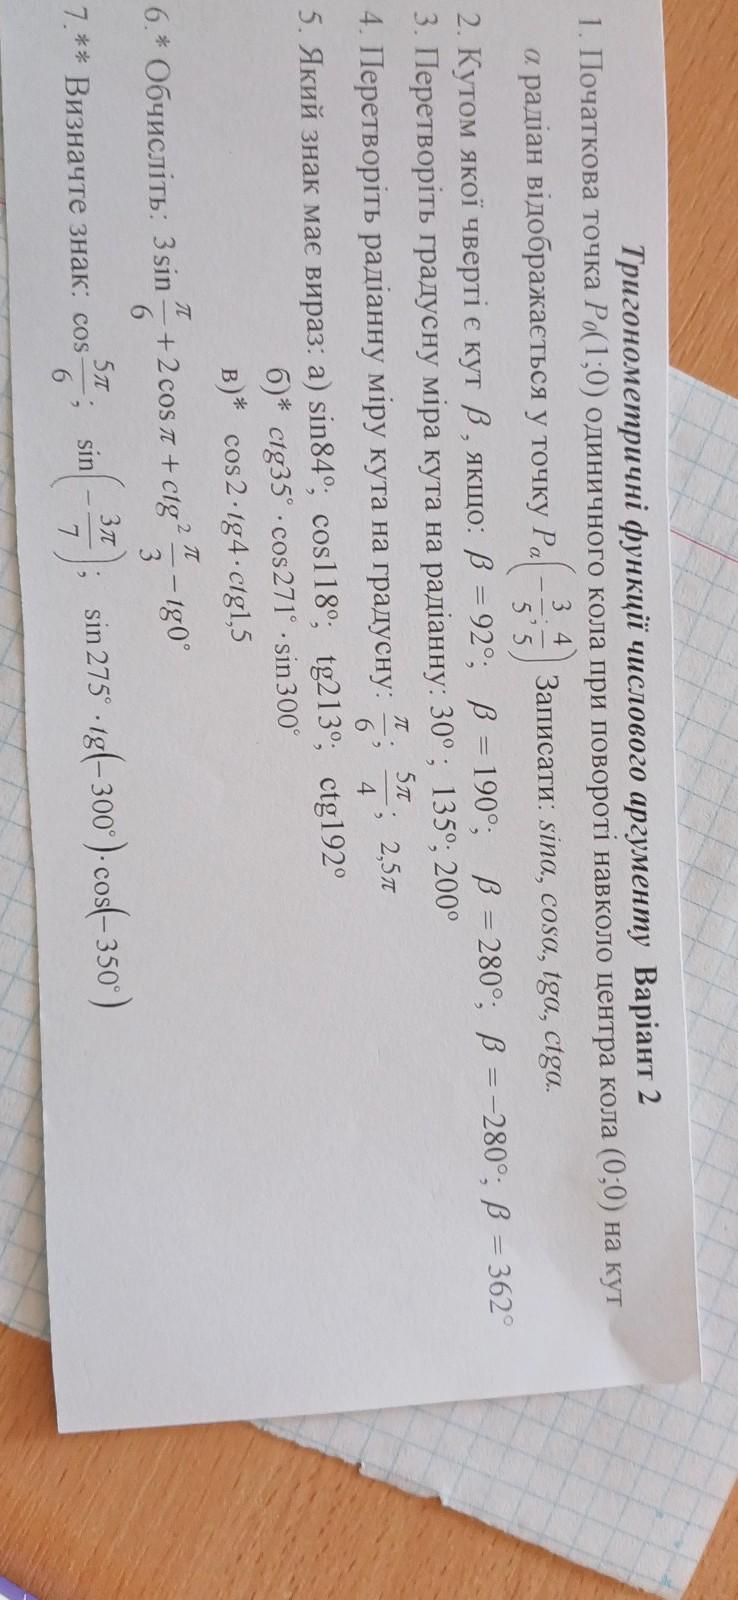 Тригонометричні функції числового аргументу Варіант 2
1. Початкова точка P₀(1;0) одиничного кола при повороті навколо центра кола (0;0) на кут
α радіан відображається у точку Pα(−3/5; 4/5) Записати: sinα, cosα, tgα, ctgα.
2. Кутом якої чверті є кут β, якщо: β = 92°; β = 190°; β = 280°; β = −280°; β = 362°
3. Перетворіть градусну міра кута на радіанну: 30°; 135°; 200°
4. Перетворіть радіанну міру кута на градусну: π/6; 5π/4; 2,5π
5. Який знак має вираз: а) sin84°; cos118°; tg213°; ctg192°
б)* ctg35°·cos271°·sin300°
в)* cos2·tg4·ctg1,5
6.* Обчисліть: 3 sin π/6 + 2 cos π + ctg² π/3 − tg0°
7.** Визначте знак: cos 5π/6; sin(−3π/7); sin 275°·tg(−300°)·cos(−350°)